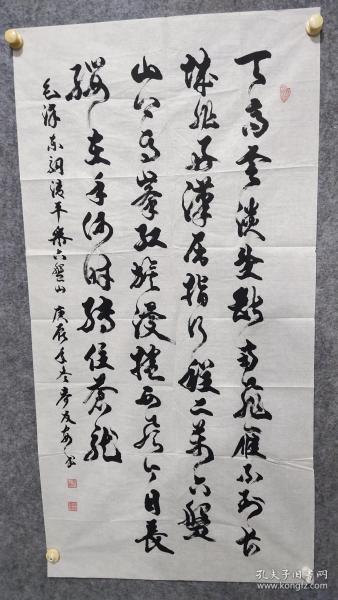 天高雲淡望断南飛雁不到长
城非好漢屈指行程二萬六盤
山上高峯红旗漫捲西风今日長
缨在手何时缚住蒼龙
毛泽东词清平乐六盘山 庚辰年冬
孔夫子旧书网
www.kongfz.com